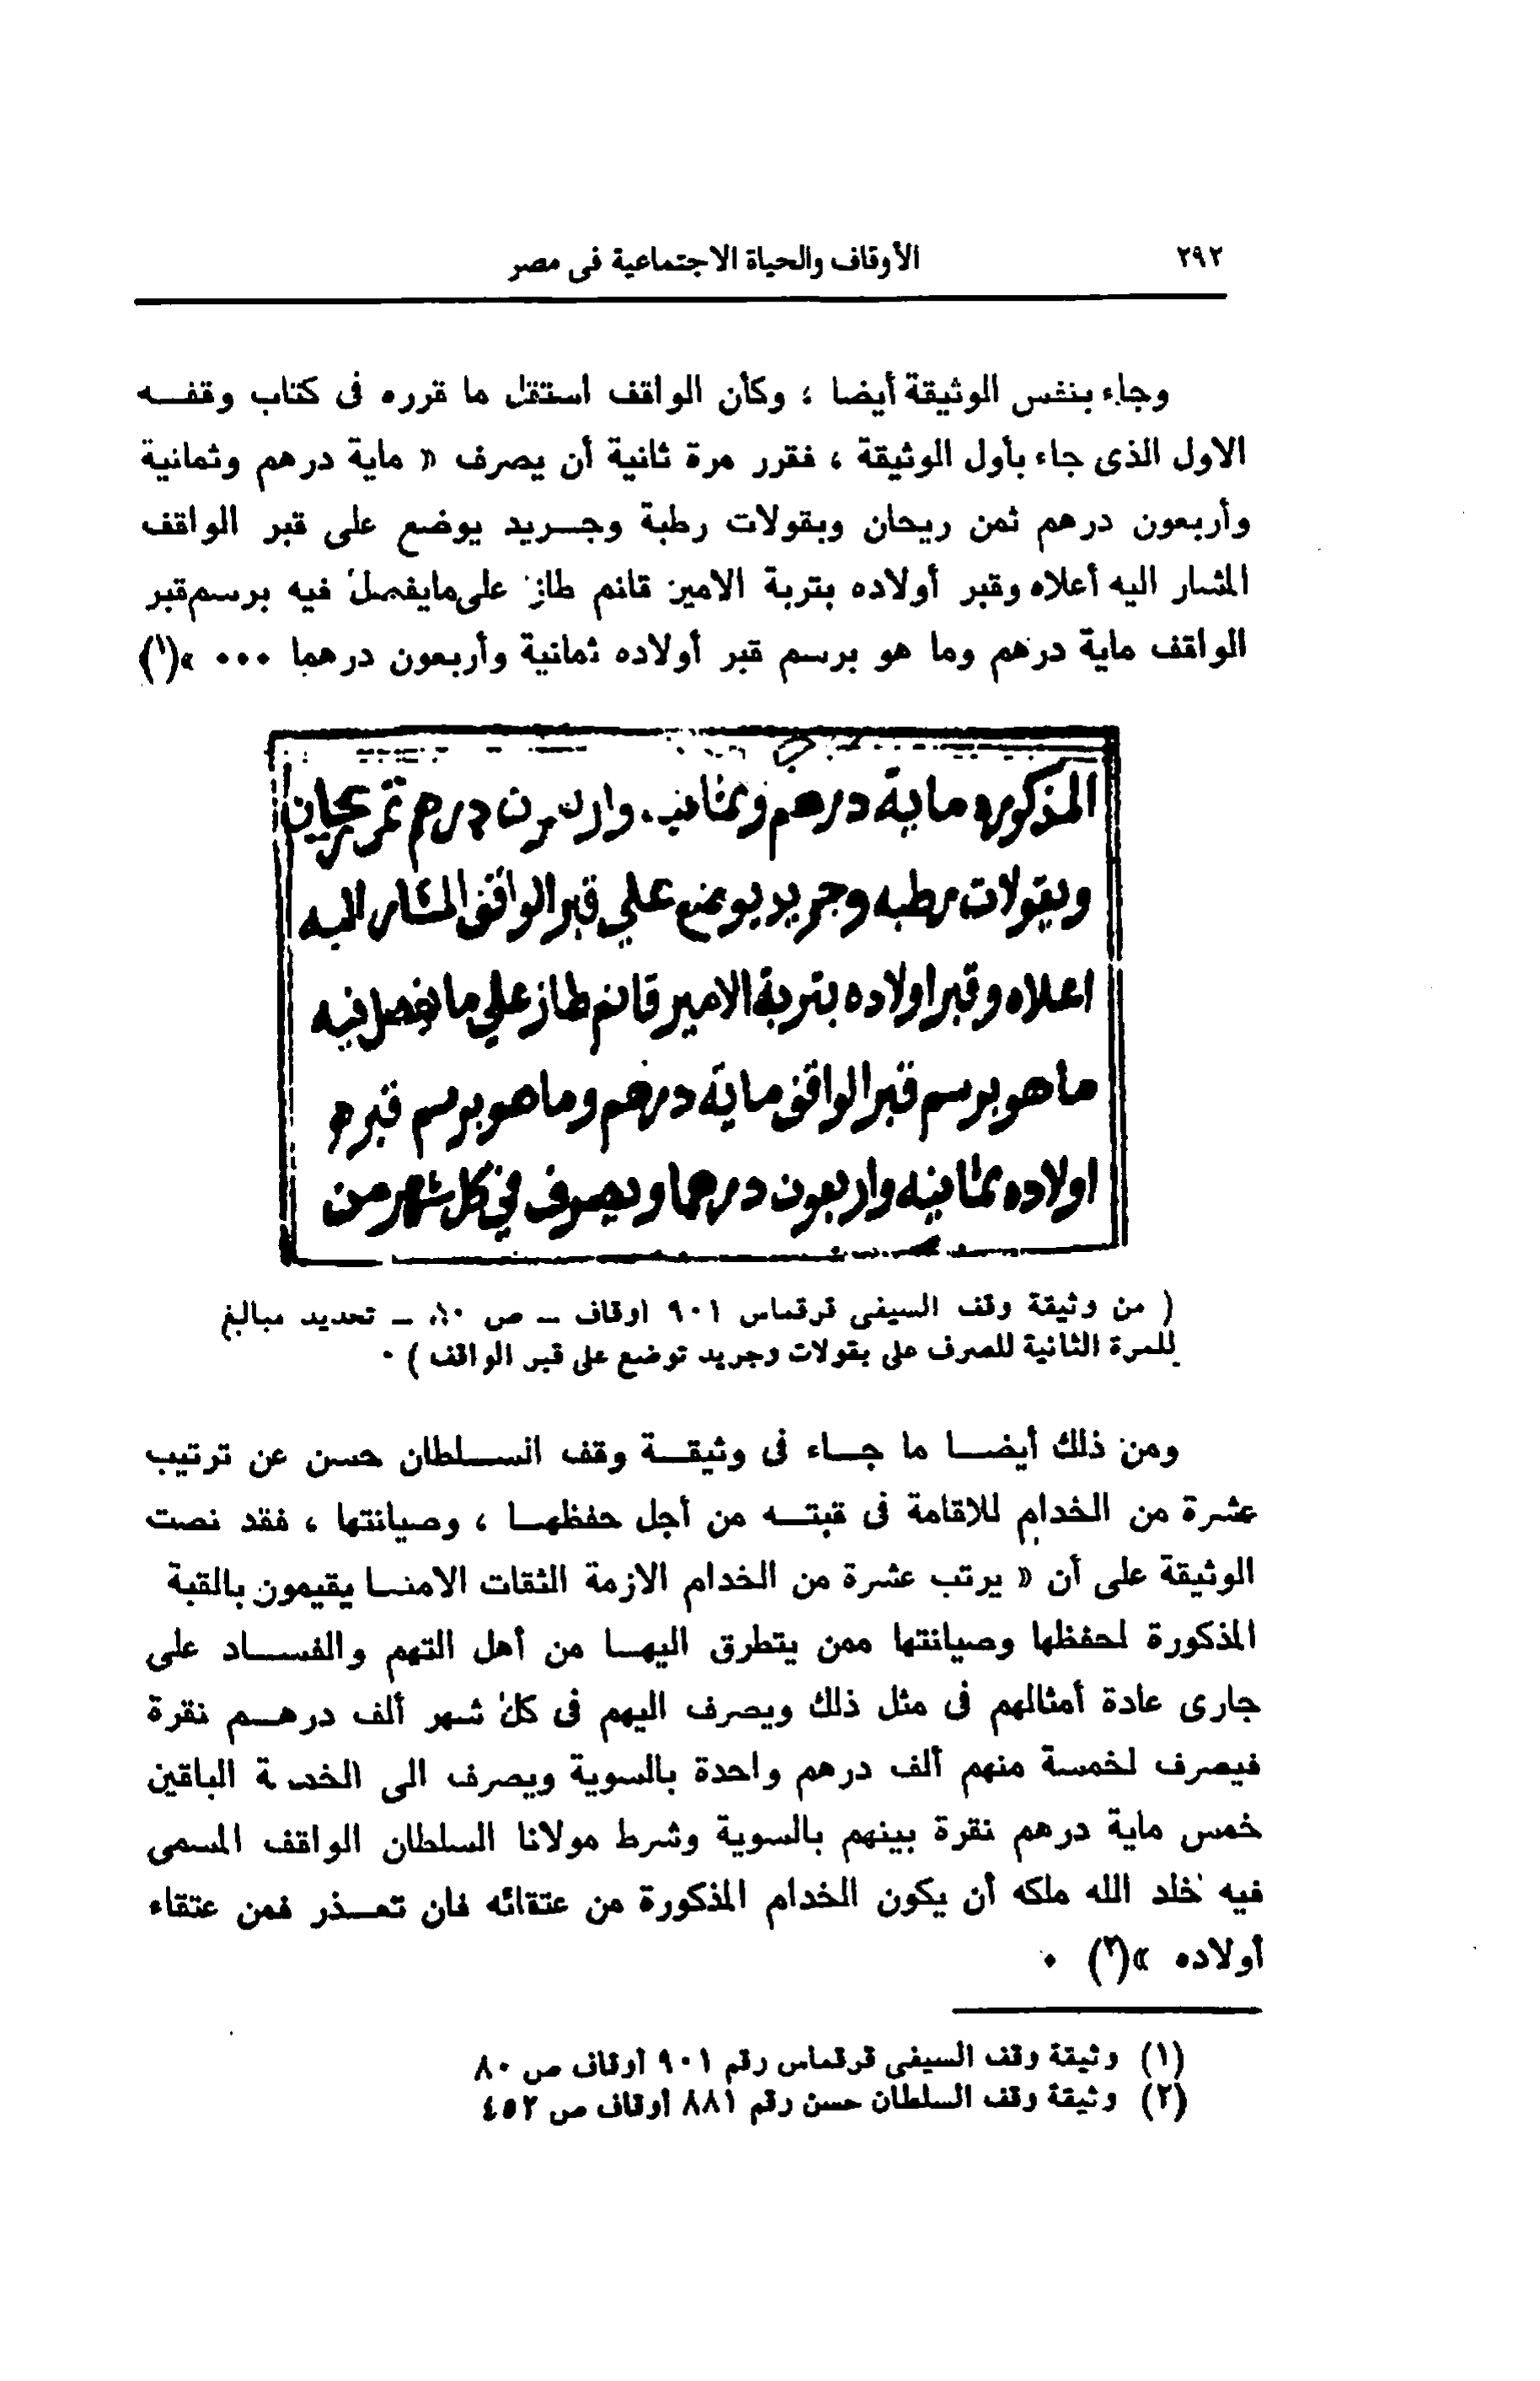 ٢٩٢
الأوقاف والحياة الاجتماعية فى مصر
وجاء بنفس الوثيقة أيضا ، وكأن الواقف استقل ما قرره فى كتاب وقفه
الاول الذى جاء بأول الوثيقة ، فقرر مرة ثانية أن يصرف « ماية درهم وثمانية
وأربعون درهم ثمن ريحان وبقولات رطبة وجريد يوضع على قبر الواقف
المشار اليه أعلاه وقبر أولاده بتربة الامير قانم طاز على مايفصل فيه برسم قبر
الواقف ماية درهم وما هو برسم قبر أولاده ثمانية وأربعون درهما ٠٠٠ »(١)
المذكوره ماية درهم وثمانيه واربعون درهم ثمن ريحان
وبقولات رطبه وجريد يوضع علي قبر الواقف المشار اليه
اعلاه وقبر اولاده بتربة الامير قانم طاز علي ما يفصل فيه
ما هو برسم قبر الواقف ماية درهم وما هو برسم قبر
اولاده ثمانيه واربعون درهما ويصرف في كل شهر من
( من وثيقة وقف السيفى قرقماس ٩٠١ اوقاف ــ ص ٨٠ ــ تحديد مبالغ
للمرة الثانية للصرف على بقولات وجريد توضع على قبر الواقف ) ٠
ومن ذلك أيضا ما جاء فى وثيقة وقف السلطان حسن عن ترتيب
عشرة من الخدام للاقامة فى قبته من أجل حفظها ، وصيانتها ، فقد نصت
الوثيقة على أن « يرتب عشرة من الخدام الازمة الثقات الامنا يقيمون بالقبة
المذكورة لحفظها وصيانتها ممن يتطرق اليها من أهل التهم والفساد على
جارى عادة أمثالهم فى مثل ذلك ويصرف اليهم فى كل شهر ألف درهم نقرة
فيصرف لخمسة منهم ألف درهم واحدة بالسوية ويصرف الى الخمسة الباقين
خمس ماية درهم نقرة بينهم بالسوية وشرط مولانا السلطان الواقف المسمى
فيه خلد الله ملكه أن يكون الخدام المذكورة من عتقائه فان تعذر فمن عتقاء
أولاده »(٢) ٠
(١) وثيقة وقف السيفى قرقماس رقم ٩٠١ أوقاف ص ٨٠
(٢) وثيقة وقف السلطان حسن رقم ٨٨١ أوقاف ص ٤٥٢